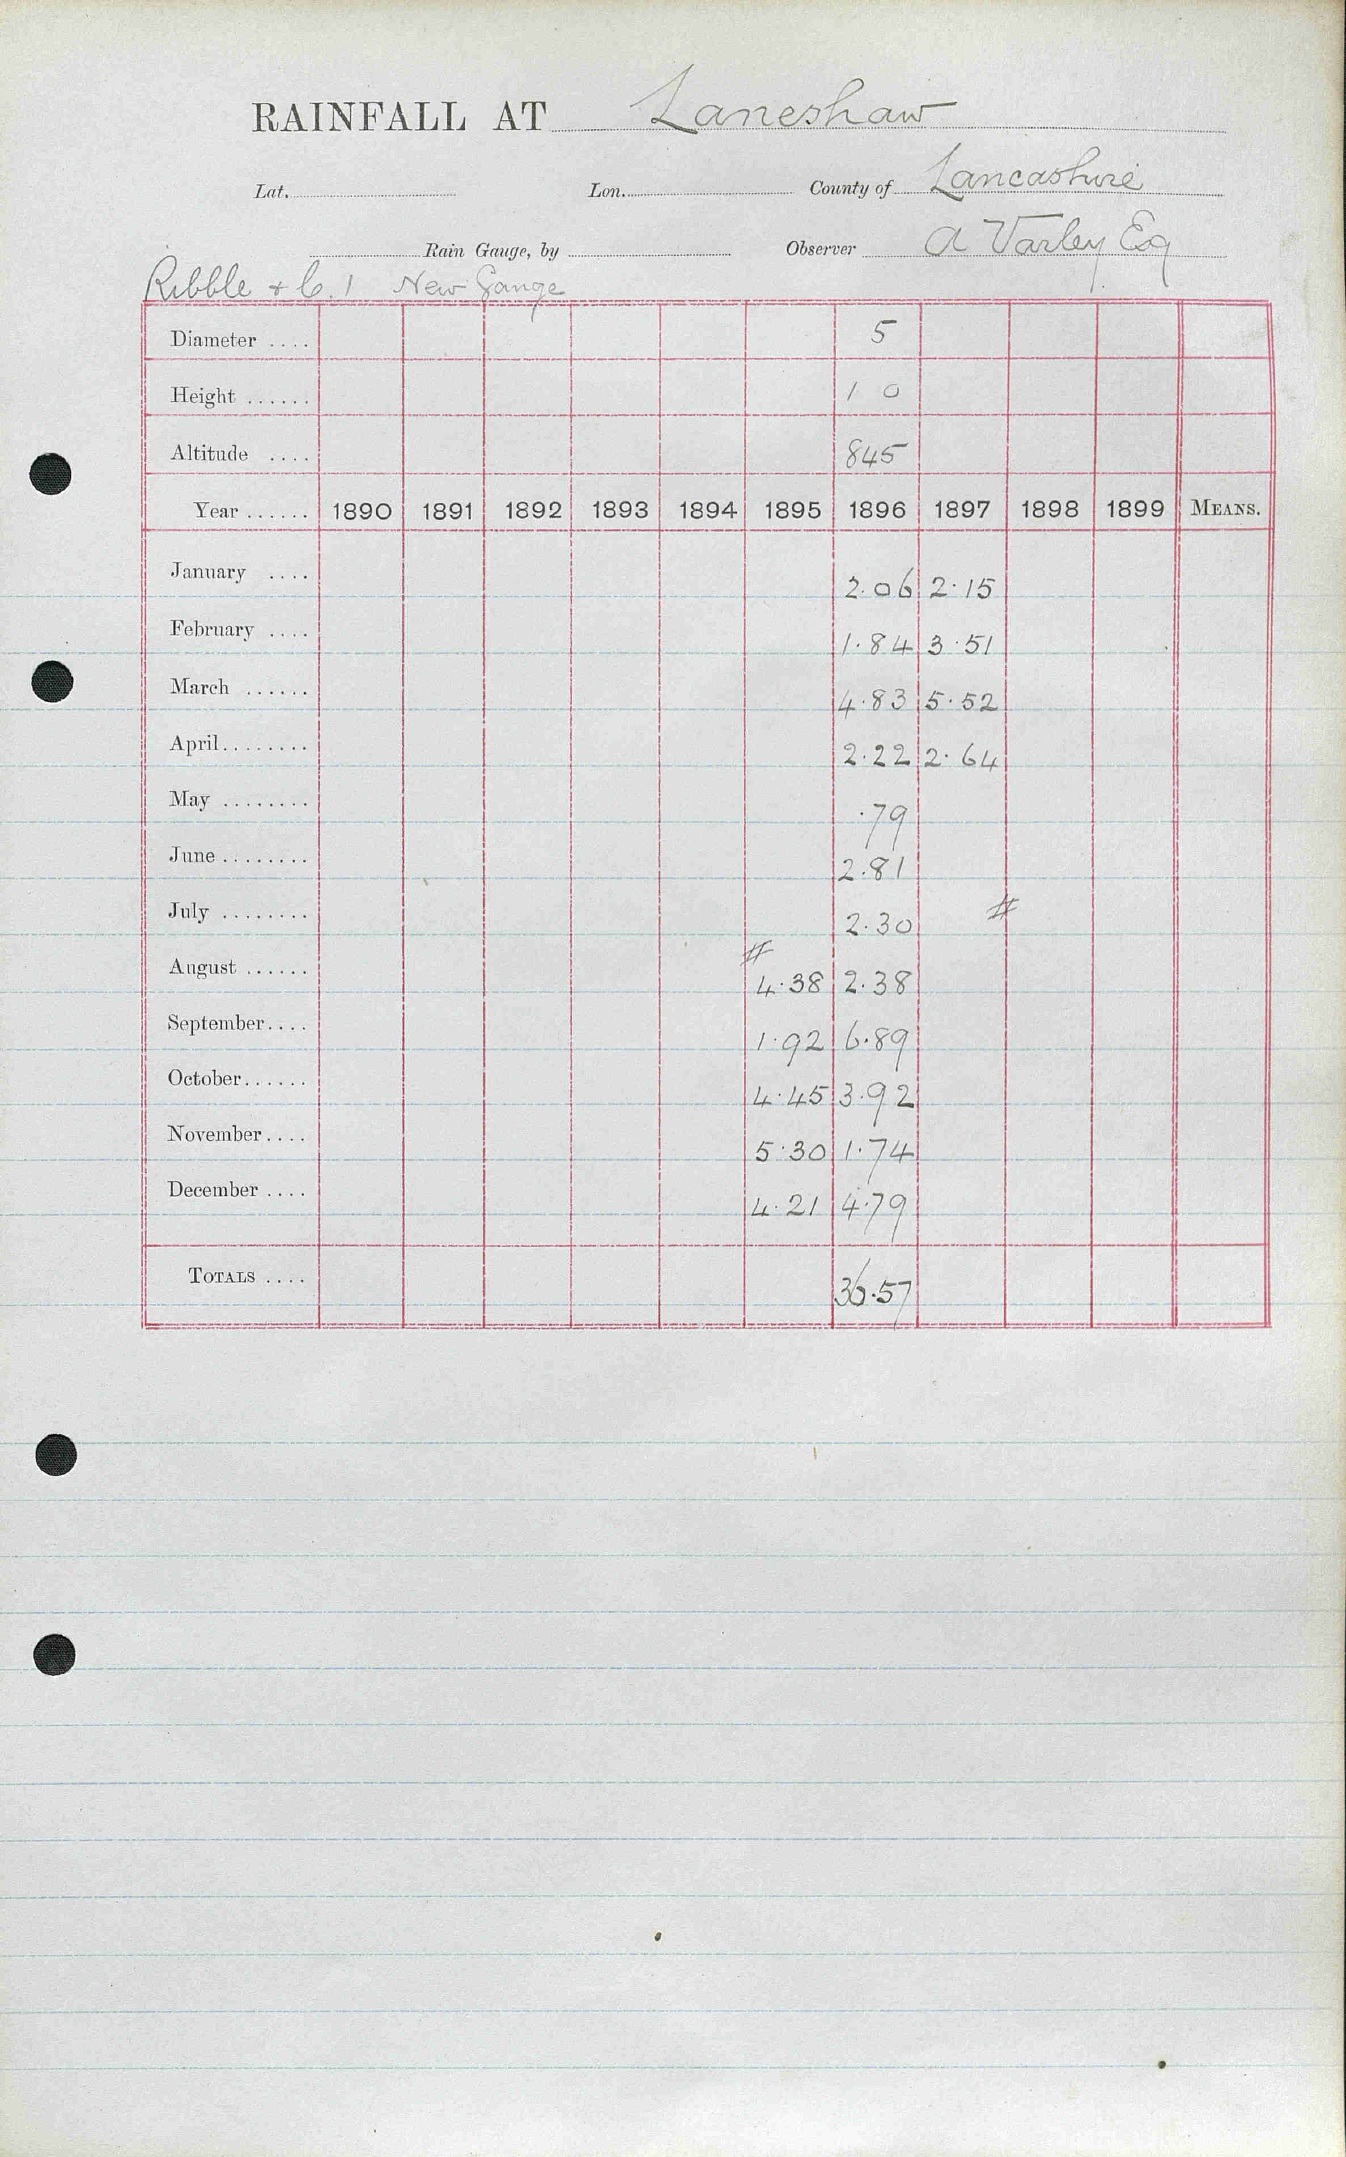 RAINFALL AT Laneshaw
Lat. Lon. County of Lancashire
Rain Gauge, by Observer A Varley Esq
Ribble & C. 1 New Gauge
Diameter .... 5
Height ...... 1 0
Altitude .... 845
Year ...... 1890 1891 1892 1893 1894 1895 1896 1897 1898 1899 MEANS.
January .... 2.06 2.15
February .... 1.84 3.51
March ...... 4.83 5.52
April........ 2.22 2.64
May ........ .79
June ........ 2.81
July ........ 2.30 #
August ...... # 4.38 2.38
September.... 1.92 6.89
October...... 4.45 3.92
November.... 5.30 1.74
December .... 4.21 4.79
TOTALS .... 36.57